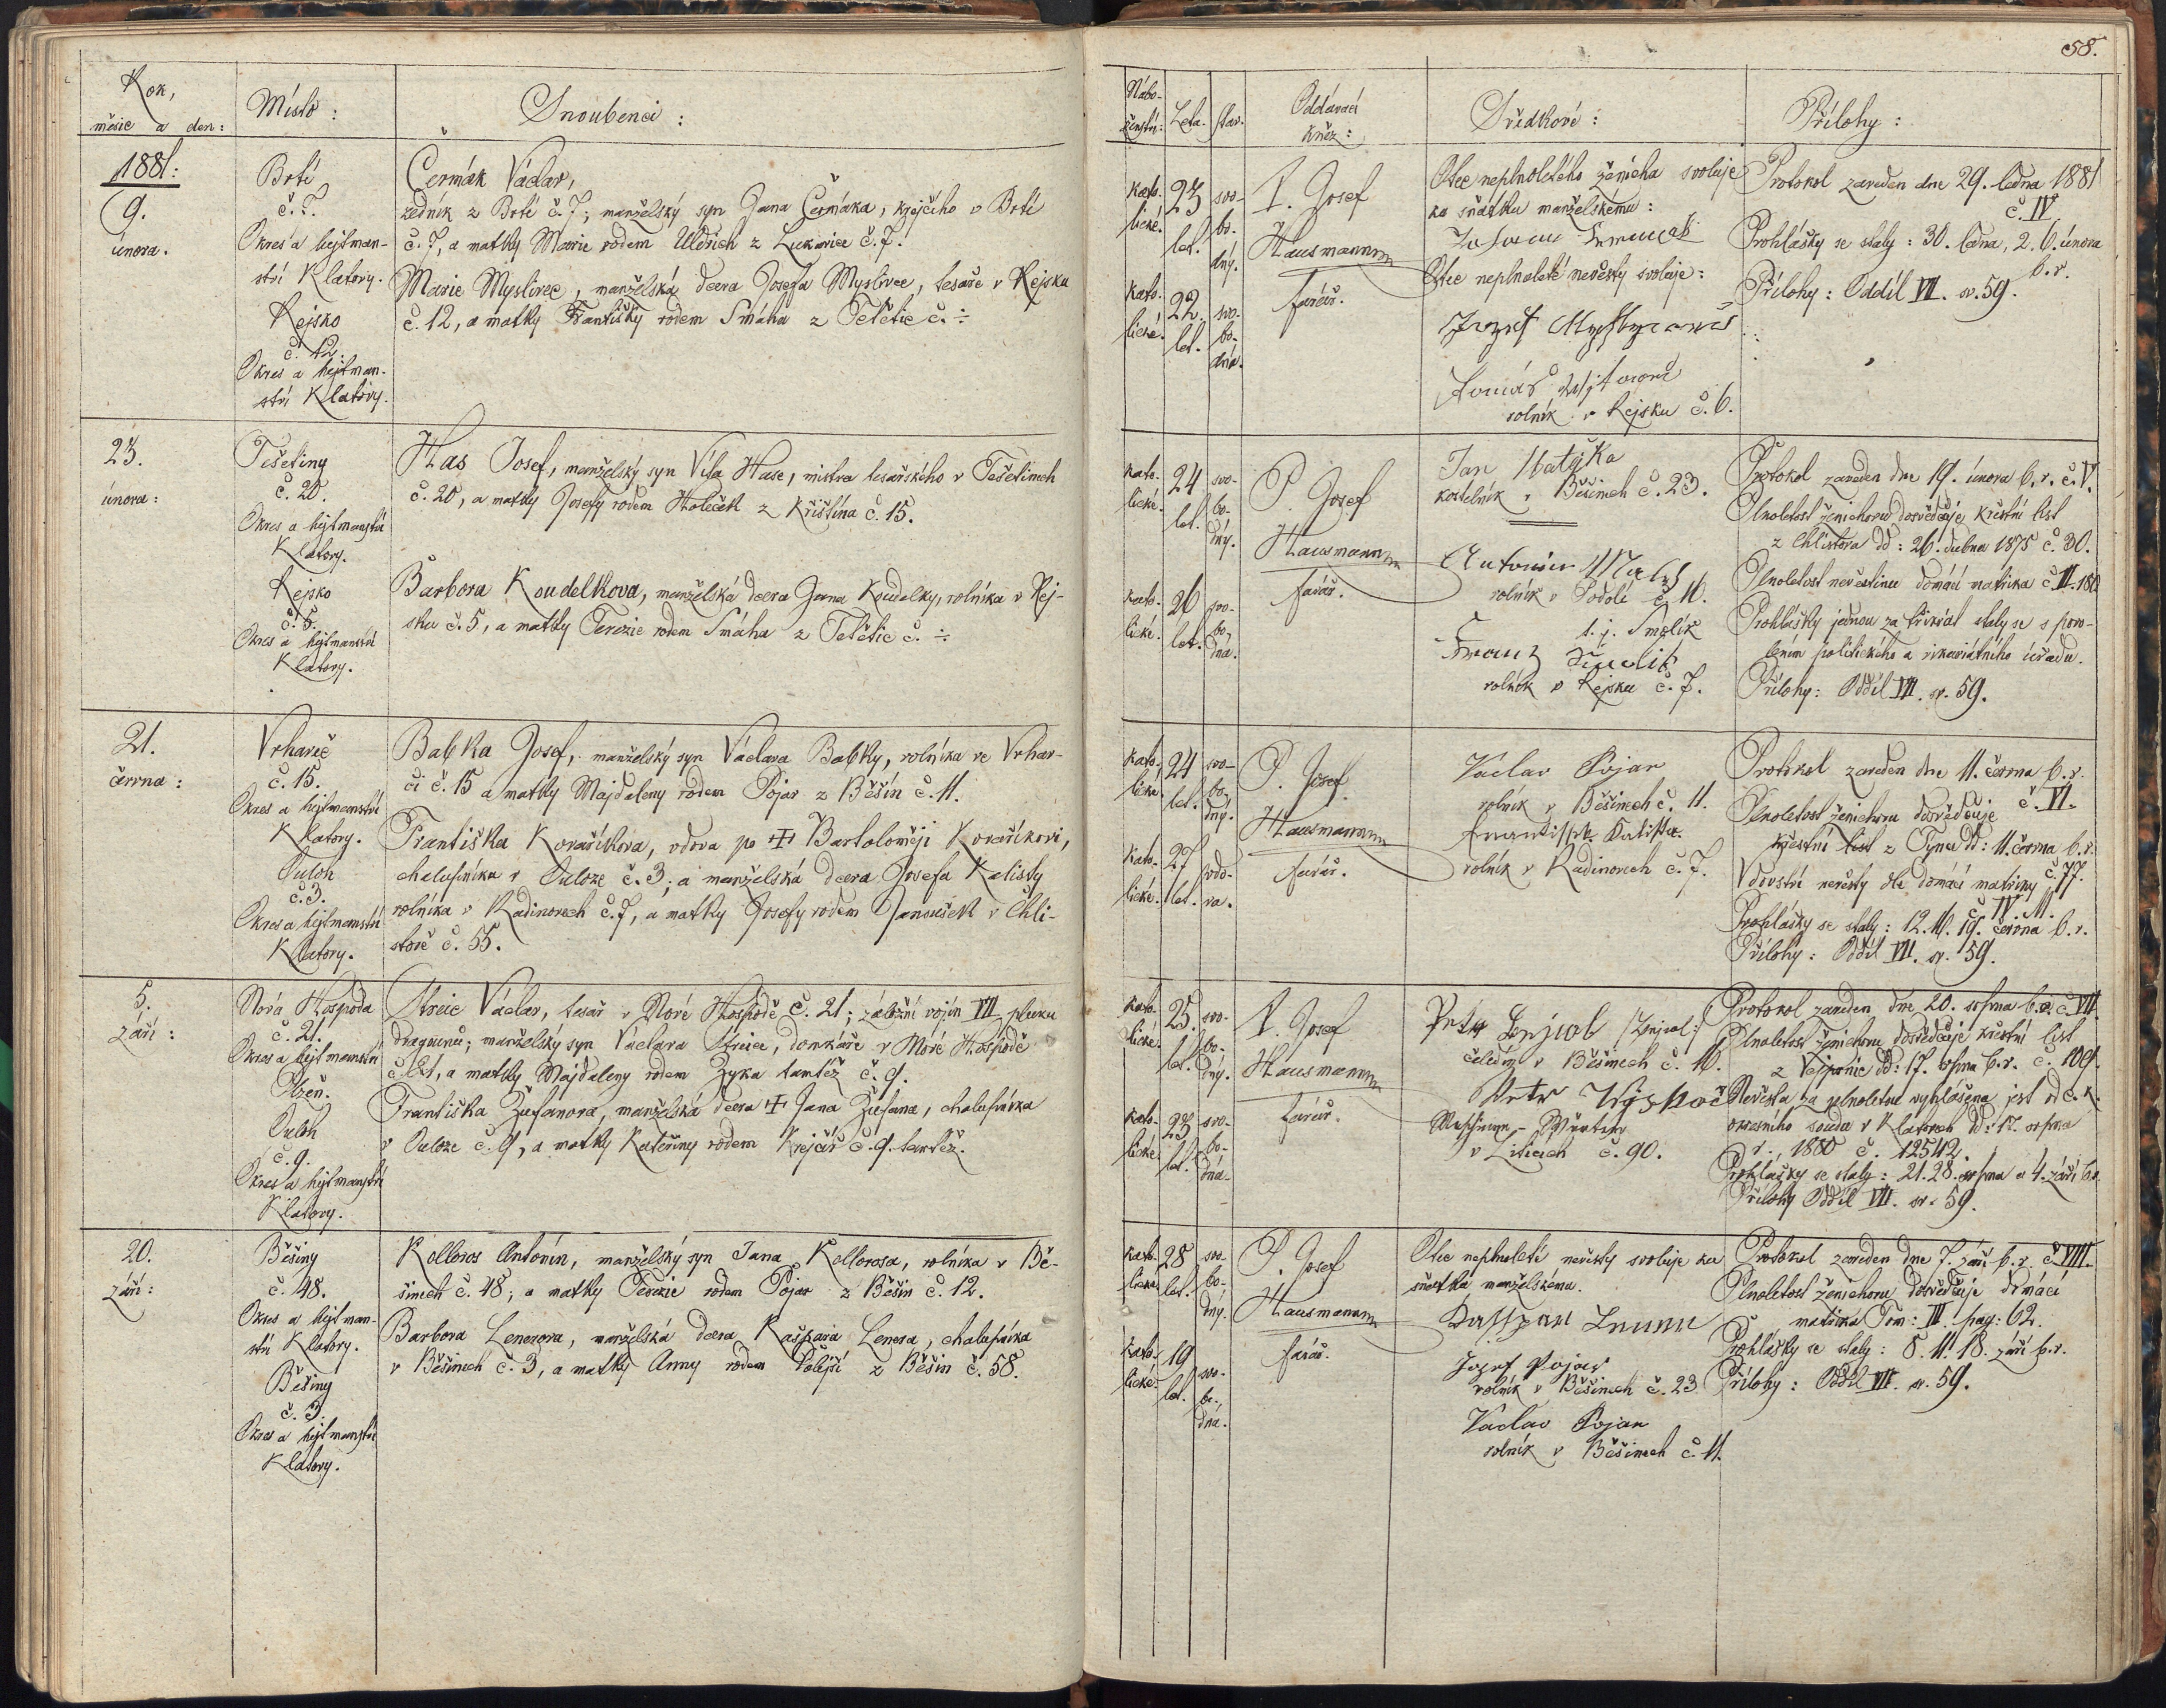 58.
Rok,
měsíc a den:
Místo:
Snoubenci:
1881:
9.
února.
Brtí
č. 7.
Okres a hejtman-
ství Klatovy.
Rejsko
č. 12.
Okres a hejtman-
ství Klatovy.
Čermák Václav,
zedník z Brtí č. 7; manželský syn Jana Čermáka, krejčího v Brtí
č. 7, a matky Marie rodem Uldrich z Lukavice č. 7.
Marie Myslivec, manželská dcera Josefa Myslivce, tesaře v Rejsku
č. 12, a matky Františky rodem Smáha z Tetětic č. ÷
23.
února:
Tešetiny
č. 20.
Okres a hejtmanství
Klatovy.
Rejsko
č. 5.
Okres a hejtmanství
Klatovy.
Has Josef, manželský syn Víta Hase, mistra tesařského v Tešetinech
č. 20, a matky Josefy rodem Holeček z Křištína č. 15.
Barbora Koudelkova, manželská dcera Jana Koudelky, rolníka v Rej-
sku č. 5, a matky Terezie rodem Smáha z Tetětic č. ÷
21.
června:
Vrhaveč
č. 15.
Okres a hejtmanství
Klatovy.
Ouloh
č. 3.
Okres a hejtmanství
Klatovy.
Babka Josef, manželský syn Václava Babky, rolníka ve Vrhav-
či č. 15 a matky Majdaleny rodem Pojar z Běšín č. 11.
Františka Kovaříkova, vdova po + Bartoloměji Kovaříkovi,
chalupníku v Ouloze č. 3; a manželská dcera Josefa Kalisty
rolníka v Radinovech č. 7, a matky Josefy rodem Janoušek v Chli-
stově č. 55.
5.
září:
Nová Hospoda
č. 21.
Okres a hejtmanství
Plzeň.
Ouloh
č. 9.
Okres a hejtmanství
Klatovy.
Václav, tesař v Nové Hospodě č. 21; záložní vojín VII pluku
dragounů; manželský syn Václava, domkáře v Nové Hospodě
č. 21, a matky Majdaleny rodem Zyka tamtéž č. 9.
Františka Žufanova, manželská dcera + Jana Žufana, chalupníka
v Ouloze č. 9, a matky Kateřiny rodem Krejčí č. 9. tamtéž.
20.
září:
Běšiny
č. 48.
Okres a hejtman-
ství Klatovy.
Běšiny
č. 3.
Okres a hejtmanství
Klatovy.
Kolloros Antonín, manželský syn Jana Kollorosa, rolníka v Bě-
šinech č. 48; a matky Terezie rodem Pojar z Běšin č. 12.
Barbora Lenerova, manželská dcera Kašpara Lenera, chalupníka
v Běšinech č. 3, a matky Anny rodem Polejší z Běšin č. 58.
Nábo-
ženství:
Leta.
stav.
Oddávací
kněz:
Svědkové:
Přílohy:
kato-
lické.
23
let.
svo-
bo-
dný.
kato-
lické.
22
let.
svo-
bo-
dná.
P. Josef
Hausmann
farář.
Otec neplnoletého ženicha svoluje
ke sňatku manželskému:
Otec neplnoleté nevěsty svoluje:
rolník v Rejsku č. 6.
Protokol zaveden dne 29. ledna 1881
č. IV.
Prohlášky se staly: 30. ledna, 2. 6. února
b. r.
Přílohy: Oddíl VII. sv. 59.
kato-
lické.
24
let.
svo-
bo-
dný.
kato-
lické.
26
let.
svo-
bo-
dná.
P. Josef
Hausmann
farář.
Jan Matějka
kostelník v Běšinech č. 23.
Antonín Malý
rolník v Podolí č. 16.
t. j. Smolík
Franz Smolik
rolník v Rejsku č. 7.
Protokol zaveden dne 19. února b. r. č. V.
Plnoletost ženichovu dosvědčuje křestní list
z Chlistova dd: 26. dubna 1875 č. 30.
Plnoletost nevěstinu domácí matrika č. III. 180
Prohlášky jednou za třikrát staly se s povo-
lením politického a vikariátního úřadu.
Přílohy: Oddíl VII. sv. 59.
kato-
lické
24
let.
svo-
bo-
dný.
kato-
lické.
27
let.
vdo-
va.
P. Josef
Hausmann
farář.
Václav Pojar
rolník v Běšinech č. 11.
František Kalista
rolník v Radinovech č. 7.
Protokol zaveden dne 11. června b. r.
č. VI.
Plnoletost ženichovu dosvědčuje
křestní list z Týnce dd: 11. června b. r.
č. 77.
Vdovství nevěsty dle domácí matriky
č. IV. 11.
Prohlášky se staly: 12. 16. 19. června b. r.
Přílohy: Oddíl VII. sv. 59.
kato-
lické
25.
let.
svo-
bo-
dný.
kato-
lické.
23
let.
svo-
bo-
dná.
P. Josef
Hausmann
farář.
čeledín v Běšinech č. 16.
v Liticích č. 90.
Protokol zaveden dne 20. srpna b. r. č. VII.
Plnoletost ženichovu dosvědčuje křestní list
z Vejprnic dd: 17. srpna b. r. č. 109.
Nevěsta za plnoletou vyhlášena jest od c. k.
okresního soudu v Klatovech dd: 17. srpna
r. 1880 č. 12542.
Prohlášky se staly: 21. 28. srpna a 4. září b. r.
Přílohy Oddíl VII. sv. 59.
kato-
lické
28
let.
svo-
bo-
dný.
kato-
lické.
19
let.
svo-
bo-
dná.
P. Josef
Hausmann
farář.
Otec neplnoleté nevěsty svoluje ku
sňatku manželskému.
Josef Pojar
rolník v Běšinech č. 23
Václav Pojar
rolník v Běšinech č. 11.
Protokol zaveden dne 7. září b. r. č. VIII.
Plnoletost ženichovu dosvědčuje domácí
matrika Tom: III. pag: 62.
Prohlášky se staly: 8. 11. 18. září b. r.
Přílohy: Oddíl VII. sv. 59.